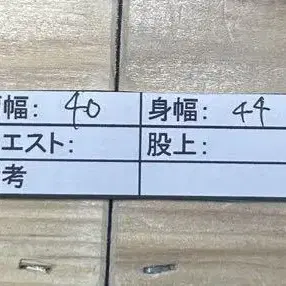 幅: 40 身幅: 44
エスト: 股上:
考